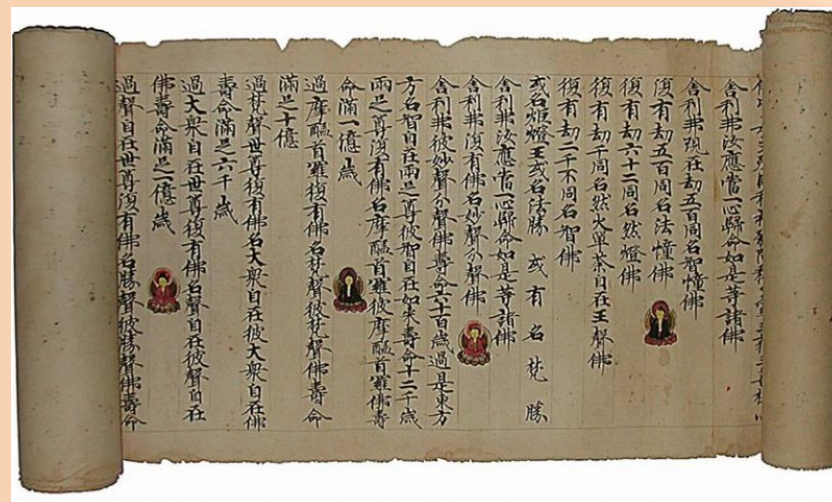 舍利弗汝應當一心歸命如是等諸佛
舍利弗現在劫五百同名智幢佛
復有劫五百同名法幢佛
復有劫六十二同名然燈佛
復有劫千同名然火單荼自在王聲佛
復有劫二千不同名智佛
或名炬燈王或名法勝或有名梵勝
舍利弗汝應當一心歸命如是等諸佛
舍利弗復有佛名妙聲分聲佛
舍利弗彼妙聲分聲佛壽命六十百歲過是東方
方名智自在兩足尊彼智自在如来壽命十二千歲
兩足尊復有佛名摩醯首羅彼摩醯首羅佛壽
命滿一億歲
過摩醯首羅復有佛名梵聲彼梵聲佛壽命
滿足十億
過梵聲世尊復有佛名大衆自在彼大衆自在佛
壽命滿足六千歲
過大衆自在世尊復有佛名聲自在彼聲自在
佛壽命滿足一億歲
過聲自在世尊復有佛名勝聲彼勝聲佛壽命